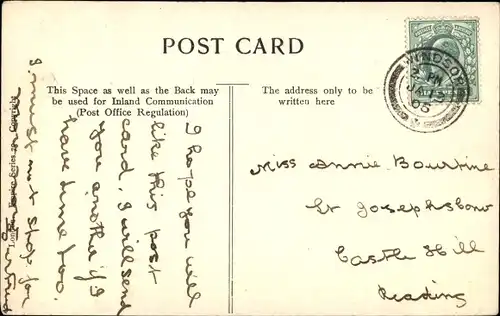 POST CARD
This Space as well as the Back may
be used for Inland Communication
(Post Office Regulation)
The address only to be
written here
WINDSOR
2 PM
JA 15
05
I hope you will
like this post
card, I will send
you another if I
have time too.
I must not stop for
Miss Annie Bourtine
St Josephs
Castle Hill
Reading